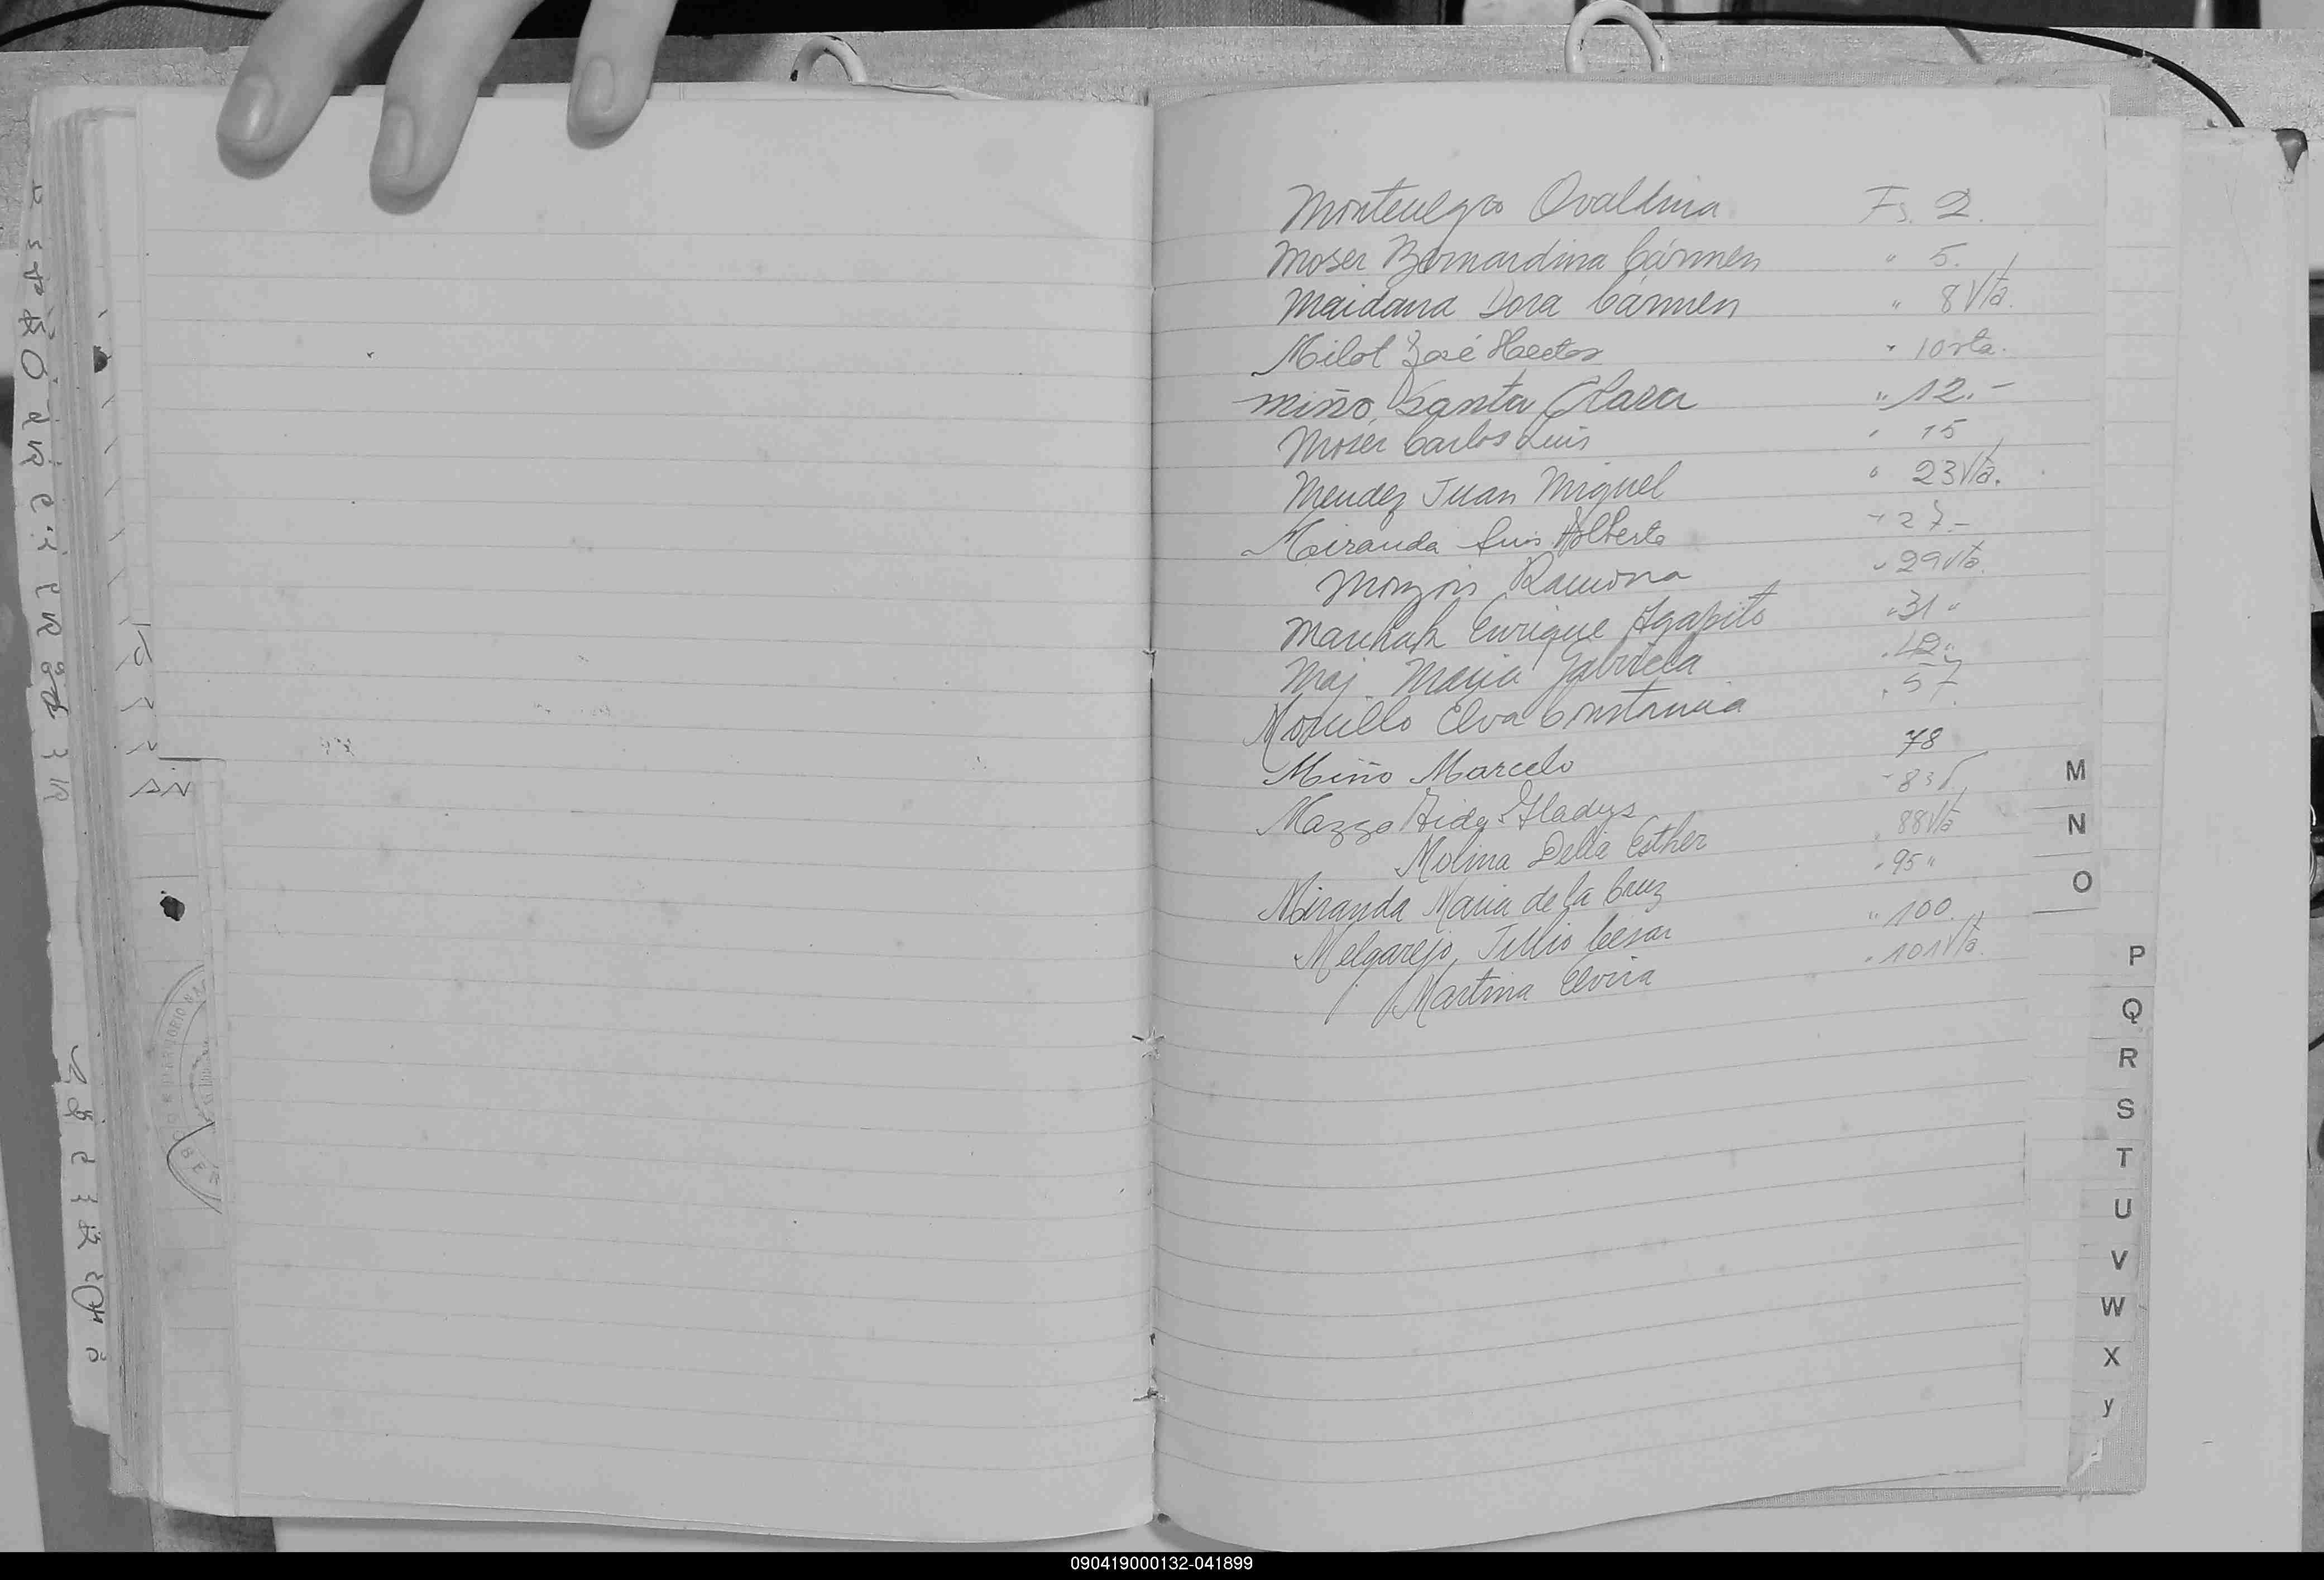 Montenegro Ovaldina Fs. 2.
Moser Bernardina Cármen " 5.
Maidana Dora Cármen " 8 Vta.
Milot José Hector " 10 vta.
Miño, Santa Clara " 12.-
Moser Carlos Luis " 15
Mendez Juan Miguel " 23 Vta.
Miranda Luis Alberto " 27.-
Monzón Ramona " 29 vta.
Enrique Agapito " 31 "
Maj. Maria Gabriela " 42 "
Elva Constancia " 57
Miño Marcelo 78
Mazzo Aida Gladys " 83 V
Molina Delia Esther " 88 Vta
Miranda Maria de la Cruz " 95 "
Melgarejo, Julio Cesar " 100.
Martina Elvira " 101 Vta.
M
N
O
P
Q
R
S
T
U
V
W
X
y
090419000132-041899